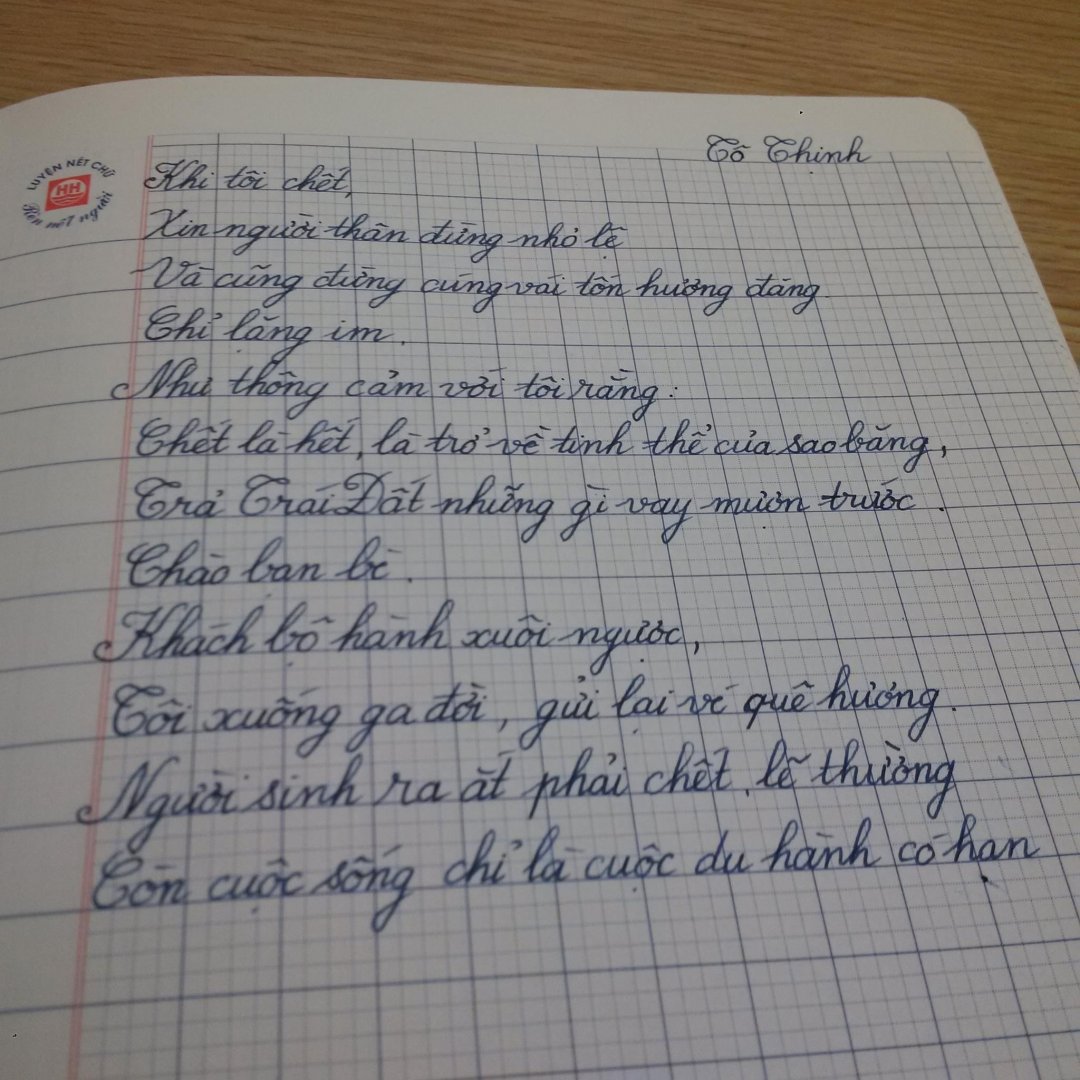 Tô Thinh
LUYỆN NÉT CHỮ
HH
Rèn nết người
Khi tôi chết,
Xin người thân đừng nhỏ lệ
Và cũng đừng cúng vái tốn hương đăng.
Chỉ lặng im.
Như thông cảm với tôi rằng:
Chết là hết, là trở về tinh thể của sao băng,
Trả Trái Đất những gì vay mượn trước.
Chào bạn bè.
Khách bộ hành xuôi ngược,
Tôi xuống ga đời, gửi lại vé quê hương.
Người sinh ra ắt phải chết, lẽ thường
Còn cuộc sống chỉ là cuộc du hành có hạn